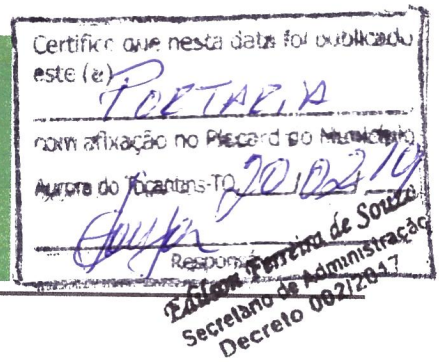 Certifico que nesta data foi publicado
este (a)
PORTARIA
com afixação no Placard do Município
Aurora do Tocantins-TO 20/02/19
Respon
Edilson Ferreira de Souza
Secretário de Administração
Decreto 002/2017